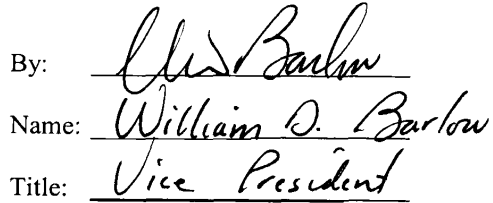 By: Barlow
Name: William D. Barlow
Title: Vice President